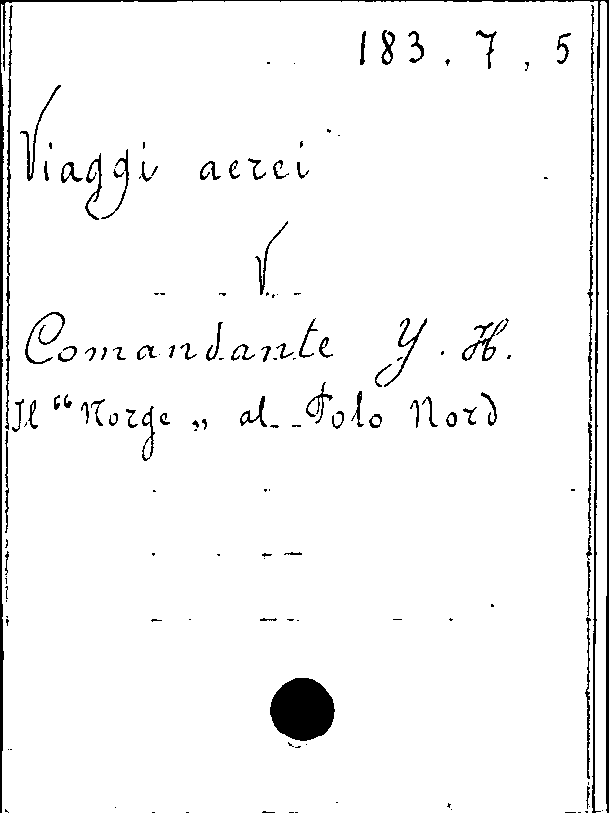 183.7,5
Viaggi aerei
V
Comandante Y. H.
Il "Norge" al Polo Nord